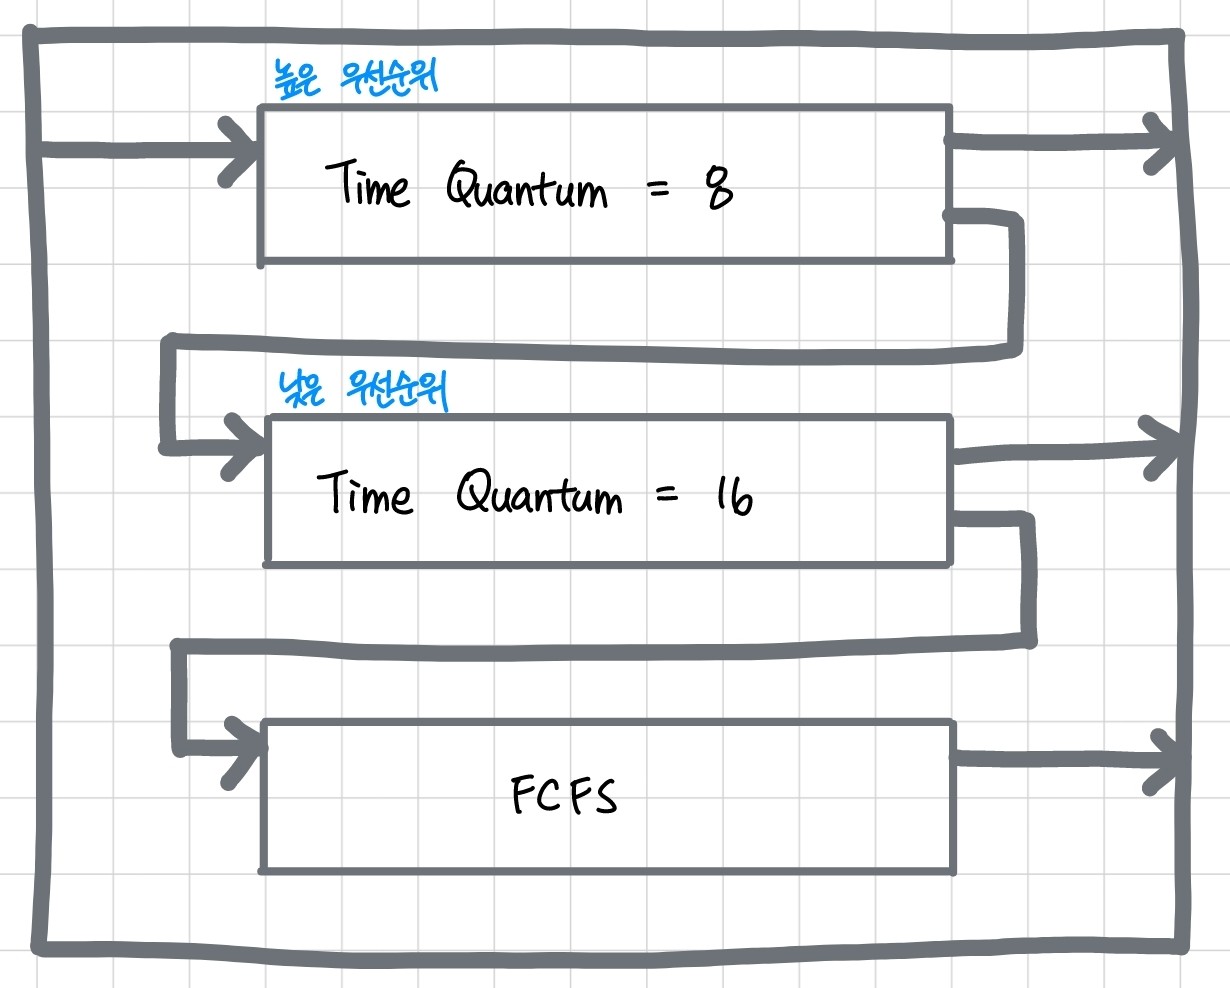 높은 우선순위
Time Quantum = 8
낮은 우선순위
Time Quantum = 16
FCFS